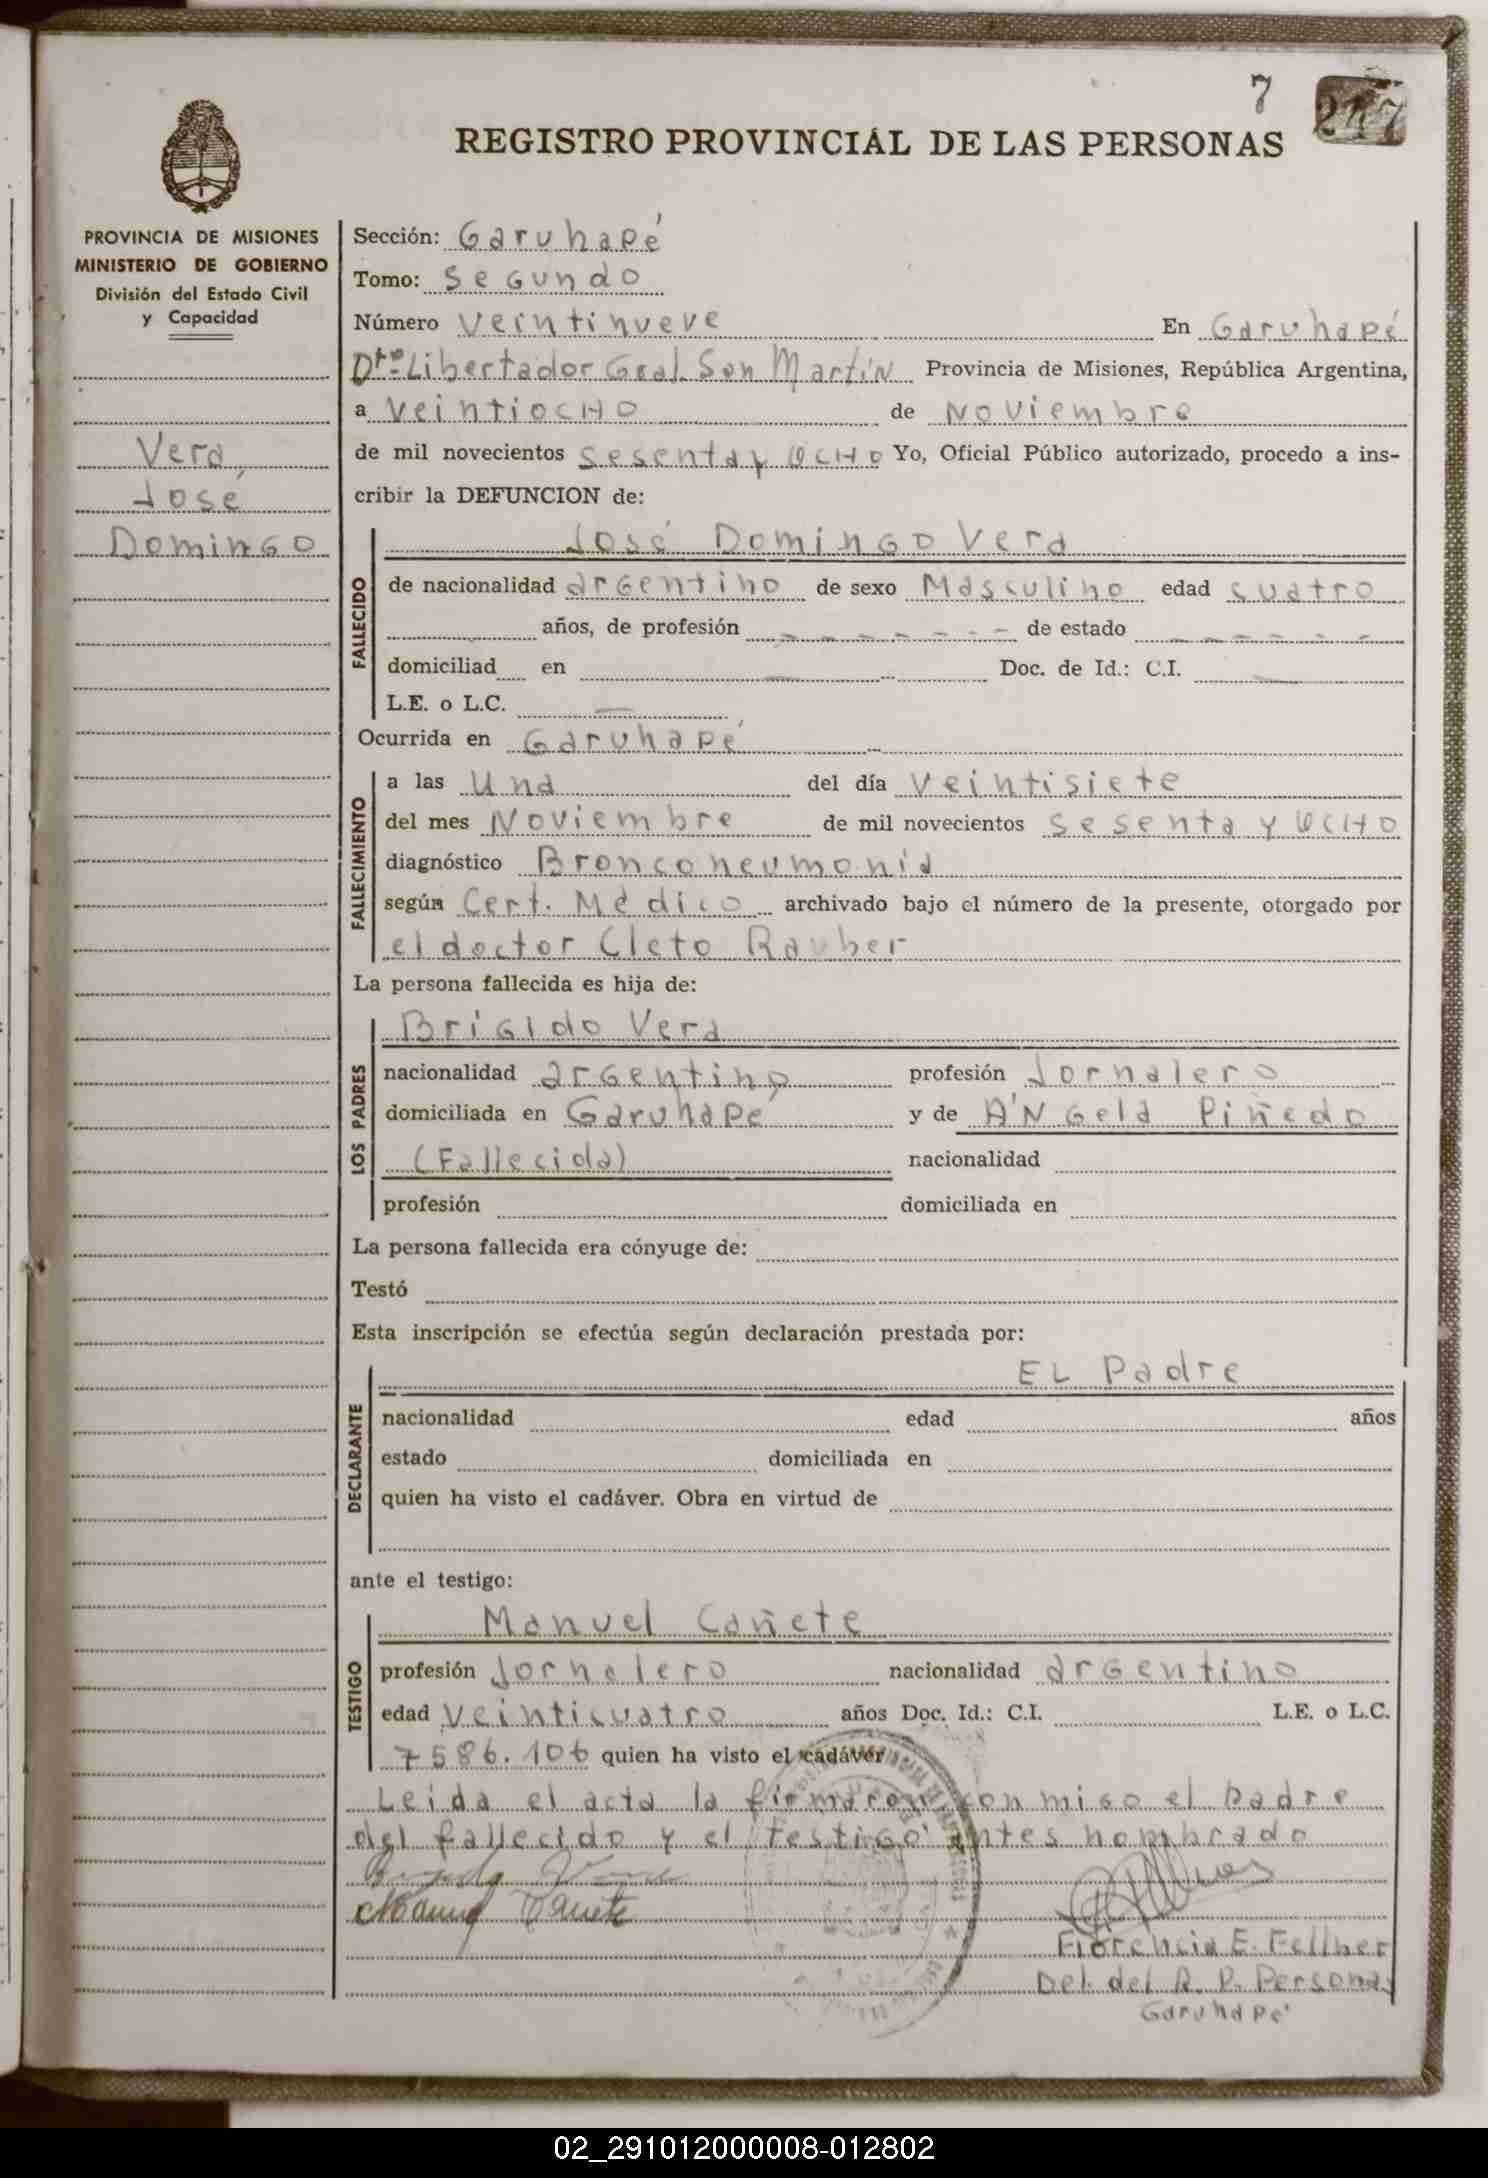 7 217
REGISTRO PROVINCIAL DE LAS PERSONAS
PROVINCIA DE MISIONES
MINISTERIO DE GOBIERNO
División del Estado Civil
y Capacidad
Vera,
José
Domingo
Sección: Garuhapé
Tomo: Segundo
Número veintinueve En Garuhapé
Dto. Libertador Gral. San Martín Provincia de Misiones, República Argentina,
a veintiocho de Noviembre
de mil novecientos sesenta y ocho Yo, Oficial Público autorizado, procedo a ins-
cribir la DEFUNCION de:
FALLECIDO
José Domingo Vera
de nacionalidad argentino de sexo Masculino edad cuatro
años, de profesión - - - - - - - de estado - - - - - -
domiciliad en — Doc. de Id.: C.I. —
L.E. o L.C. —
Ocurrida en Garuhapé
FALLECIMIENTO
a las Una del día veintisiete
del mes Noviembre de mil novecientos sesenta y ocho
diagnóstico Bronconeumonía
según Cert. Médico archivado bajo el número de la presente, otorgado por
el doctor Cleto Rauber
La persona fallecida es hija de:
LOS PADRES
Brígido Vera
nacionalidad argentino profesión Jornalero
domiciliada en Garuhapé y de Ángela Piñedo
(Fallecida) nacionalidad
profesión domiciliada en
La persona fallecida era cónyuge de:
Testó
Esta inscripción se efectúa según declaración prestada por:
DECLARANTE
EL Padre
nacionalidad edad años
estado domiciliada en
quien ha visto el cadáver. Obra en virtud de
ante el testigo:
TESTIGO
Manuel Cañete
profesión Jornalero nacionalidad argentino
edad veinticuatro años Doc. Id.: C.I. L.E. o L.C.
7586.106 quien ha visto el cadáver
Leída el acta la firmaron conmigo el padre
del fallecido y el testigo antes nombrado
Manuel Cañete
Florencia E. Fellner
Del. del R. P. Personas
Garuhapé
02_291012000008-012802